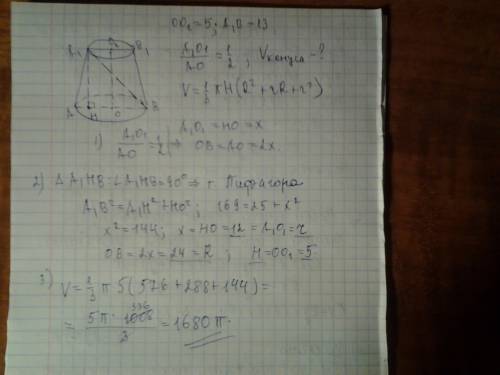 OO₁=5; A₁B=13
A₁O₁/AO=1/2; Vконуса-?
V=1/3πH(R²+rR+r²)
A₁ O₁ B₁
A H O B
1) A₁O₁/AO=1/2 ⇒ A₁O₁=HO=x
OB=AO=2x.
2) Δ A₁HB-∠A₁HB=90° ⇒ т. Пифагора
A₁B²=A₁H²+HO²; 169=25+x²
x²=144; x=HO=12=A₁O₁=r
OB=2x=24=R; H=OO₁=5
3) V=1/3π5(576+288+144)=
=5π·1008/3 336=1680π.